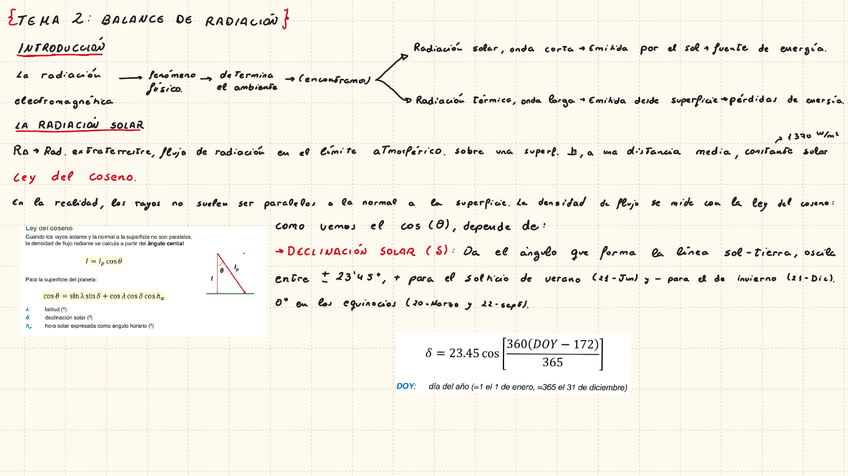 {TEMA 2: BALANCE DE RADIACIÓN}
INTRODUCCIÓN
Radiación solar, onda corta → Emitida por el sol → fuente de energía.
La radiación electromagnética → fenómeno físico. → determina el ambiente → (encontramos)
Radiación térmica, onda larga → Emitida desde superficie → pérdidas de energía.
LA RADIACIÓN SOLAR
→ 1370 W/m²
RA → Rad. extraterrestre, flujo de radiación en el límite atmosférico. sobre una superf. ⊥, a una distancia media, constante solar
Ley del coseno.
En la realidad, los rayos no suelen ser paralelos a la normal a la superficie. La densidad de flujo se mide con la ley del coseno:
Ley del coseno
Cuando los rayos solares y la normal a la superficie no son paralelos,
la densidad de flujo radiante se calcula a partir del ángulo cenital
I = Iₚ cos θ
Para la superficie del planeta:
cos θ = sin λ sin δ + cos λ cos δ cos hₐ
λ: latitud (º)
δ: declinación solar (º)
hₐ: hora solar expresada como ángulo horario (º)
I θ Iₚ
como vemos el cos (θ), depende de:
→ DECLINACIÓN SOLAR (δ): Da el ángulo que forma la línea sol-tierra, oscila
entre ± 23'45º, + para el solticio de verano (21-Jun) y - para el de invierno (21-Dic).
0º en los equinocios (20-Marzo y 22-sept).
δ = 23.45 cos [360(DOY − 172) / 365]
DOY: día del año (=1 el 1 de enero, =365 el 31 de diciembre)